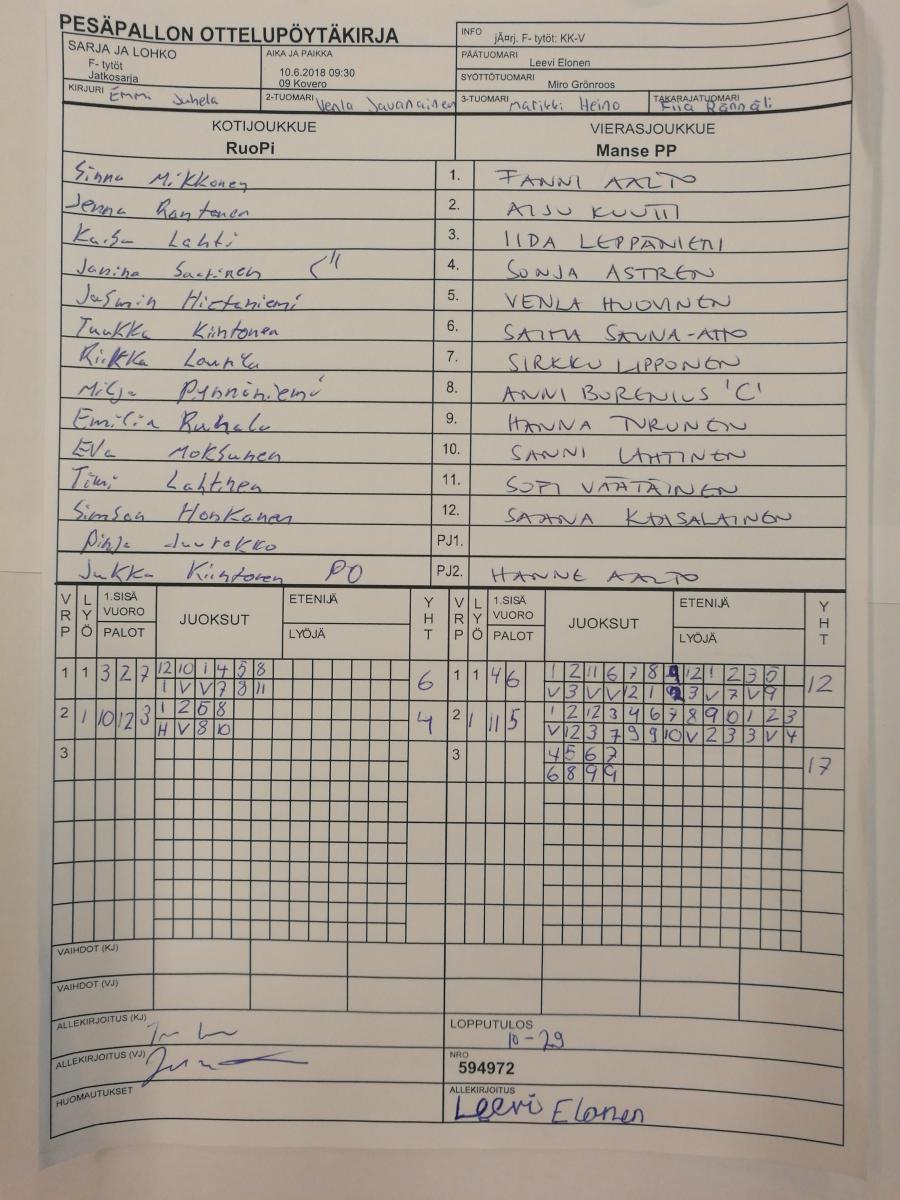 PESÄPALLON OTTELUPÖYTÄKIRJA
INFO jÃ¤rj. F- tytöt: KK-V
SARJA JA LOHKO
F- tytöt
Jatkosarja
AIKA JA PAIKKA
10.6.2018 09:30
09 Kovero
PÄÄTUOMARI Leevi Elonen
SYÖTTÖTUOMARI Miro Grönroos
KIRJURI Emmi Juhela
2-TUOMARI Venla Javanainen
3-TUOMARI Marikki Heino
TAKARAJATUOMARI Fiia Rännäli
KOTIJOUKKUE
RuoPi
VIERASJOUKKUE
Manse PP
Sinna Mikkonen 1. FANNI AALTO
Jenna Rantanen 2. AIJU KUUTTI
Kaisa Lahti 3. IIDA LEPPÄNIEMI
Janina Saarinen C" 4. SONJA ASTREN
Jasmin Hietaniemi 5. VENLA HUOVINEN
Tuukka Kiintonen 6. SAIMA SAUNA-AHO
Riikka Launla 7. SIRKKU LIPPONEN
Milja Pynnöniemi 8. ANNI BORENIUS 'C'
Emilia Ruhala 9. HANNA TURUNEN
Eva Moksunen 10. SANNI LAHTINEN
Timi Lahtinen 11. SOFI VÄÄTÄINEN
Simson Honkanen 12. SAANA KAISALAINEN
Pinja PJ1.
Jukka Kiintonen PO PJ2. HANNE AALTO
VRP LYÖ 1.SISÄ VUORO PALOT JUOKSUT ETENIJÄ LYÖJÄ YHT VRP LYÖ 1.SISÄ VUORO PALOT JUOKSUT ETENIJÄ LYÖJÄ YHT
1 1 3 2 7 12 10 1 4 5 8 6 1 1 4 6 1 2 11 6 7 8 9 12 1 2 3 5 12
1 V V 7 8 11 V 3 V V 12 1 2 3 V 7 V 9
2 1 10 12 3 1 2 5 8 4 2 1 11 5 1 2 12 3 4 6 7 8 9 10 1 2 3
H V 8 10 V 12 3 7 9 9 10 V 2 3 3 V 4
3 3 4 5 6 7 17
6 8 9 9
VAIHDOT (KJ)
VAIHDOT (VJ)
ALLEKIRJOITUS (KJ)
LOPPUTULOS
10-29
ALLEKIRJOITUS (VJ)
NRO
594972
HUOMAUTUKSET
ALLEKIRJOITUS
Leevi Elonen